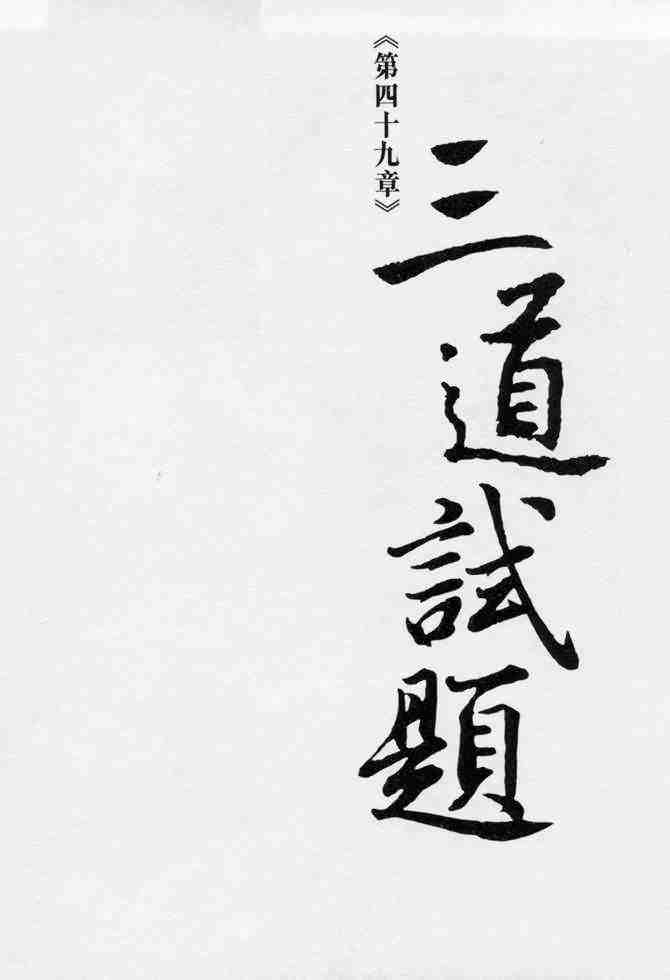 三道試題
《第四十九章》